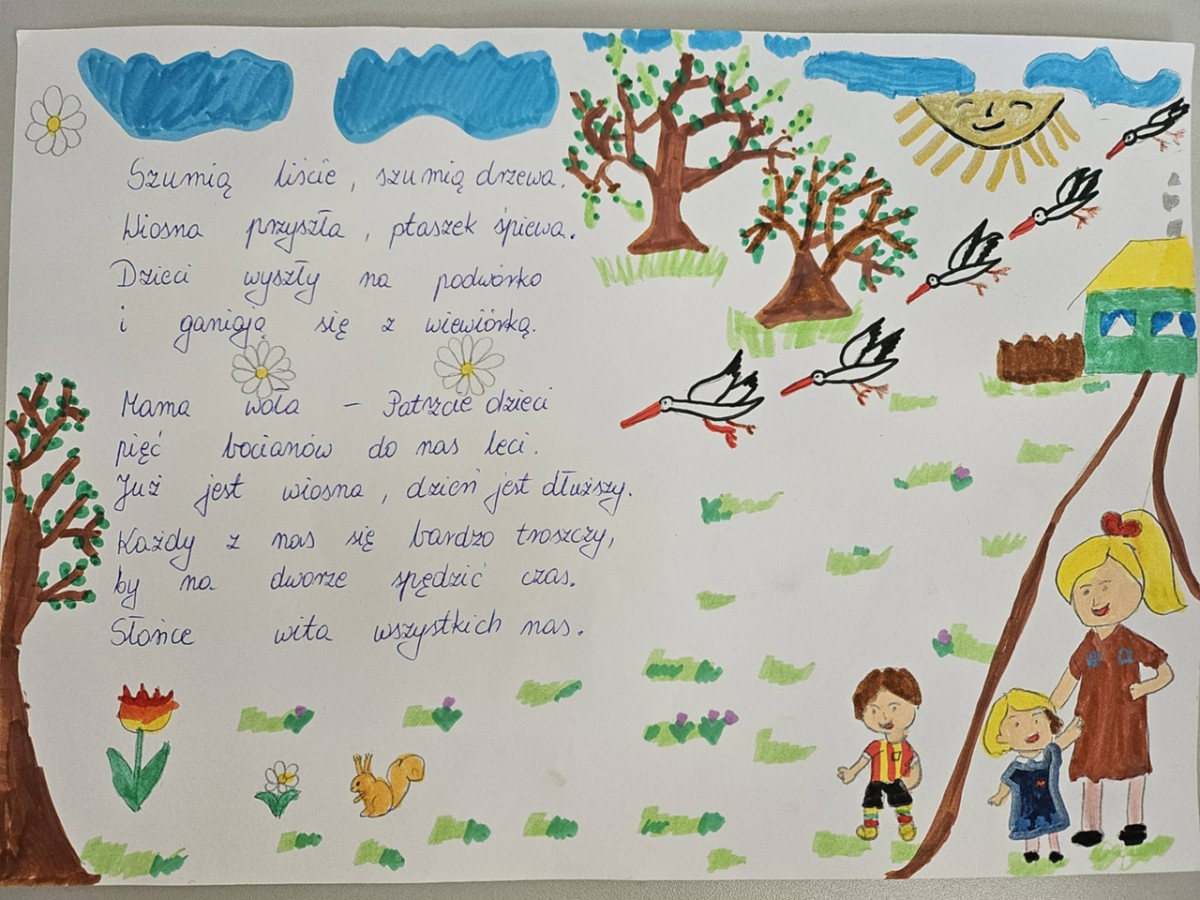 Szumią liście, szumią drzewa.
Wiosna przyszła, ptaszek śpiewa.
Dzieci wyszły na podwórko
i ganiają się z wiewiórką.
Mama woła – Patrzcie dzieci
pięć bocianów do nas leci.
Już jest wiosna, dzień jest dłuższy.
Każdy z nas się bardzo troszczy,
by na dworze spędzić czas.
Słońce wita wszystkich nas.